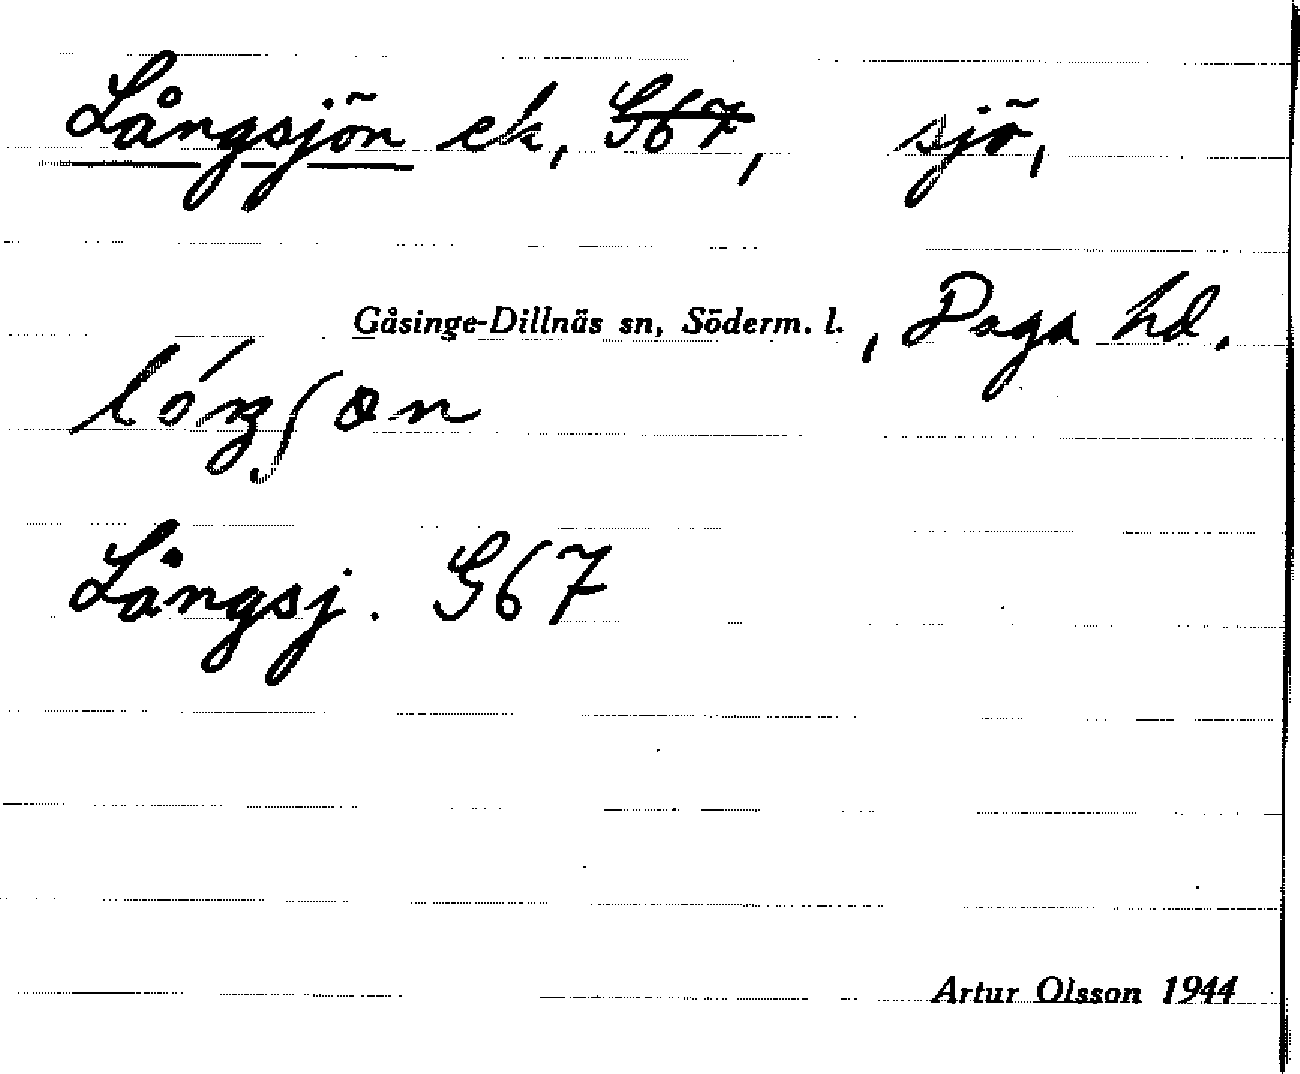 Långsjön ek, G67, sjö,
Gåsinge-Dillnäs sn, Söderm. l., Daga hd.
Långsj. G67
Artur Olsson 1944